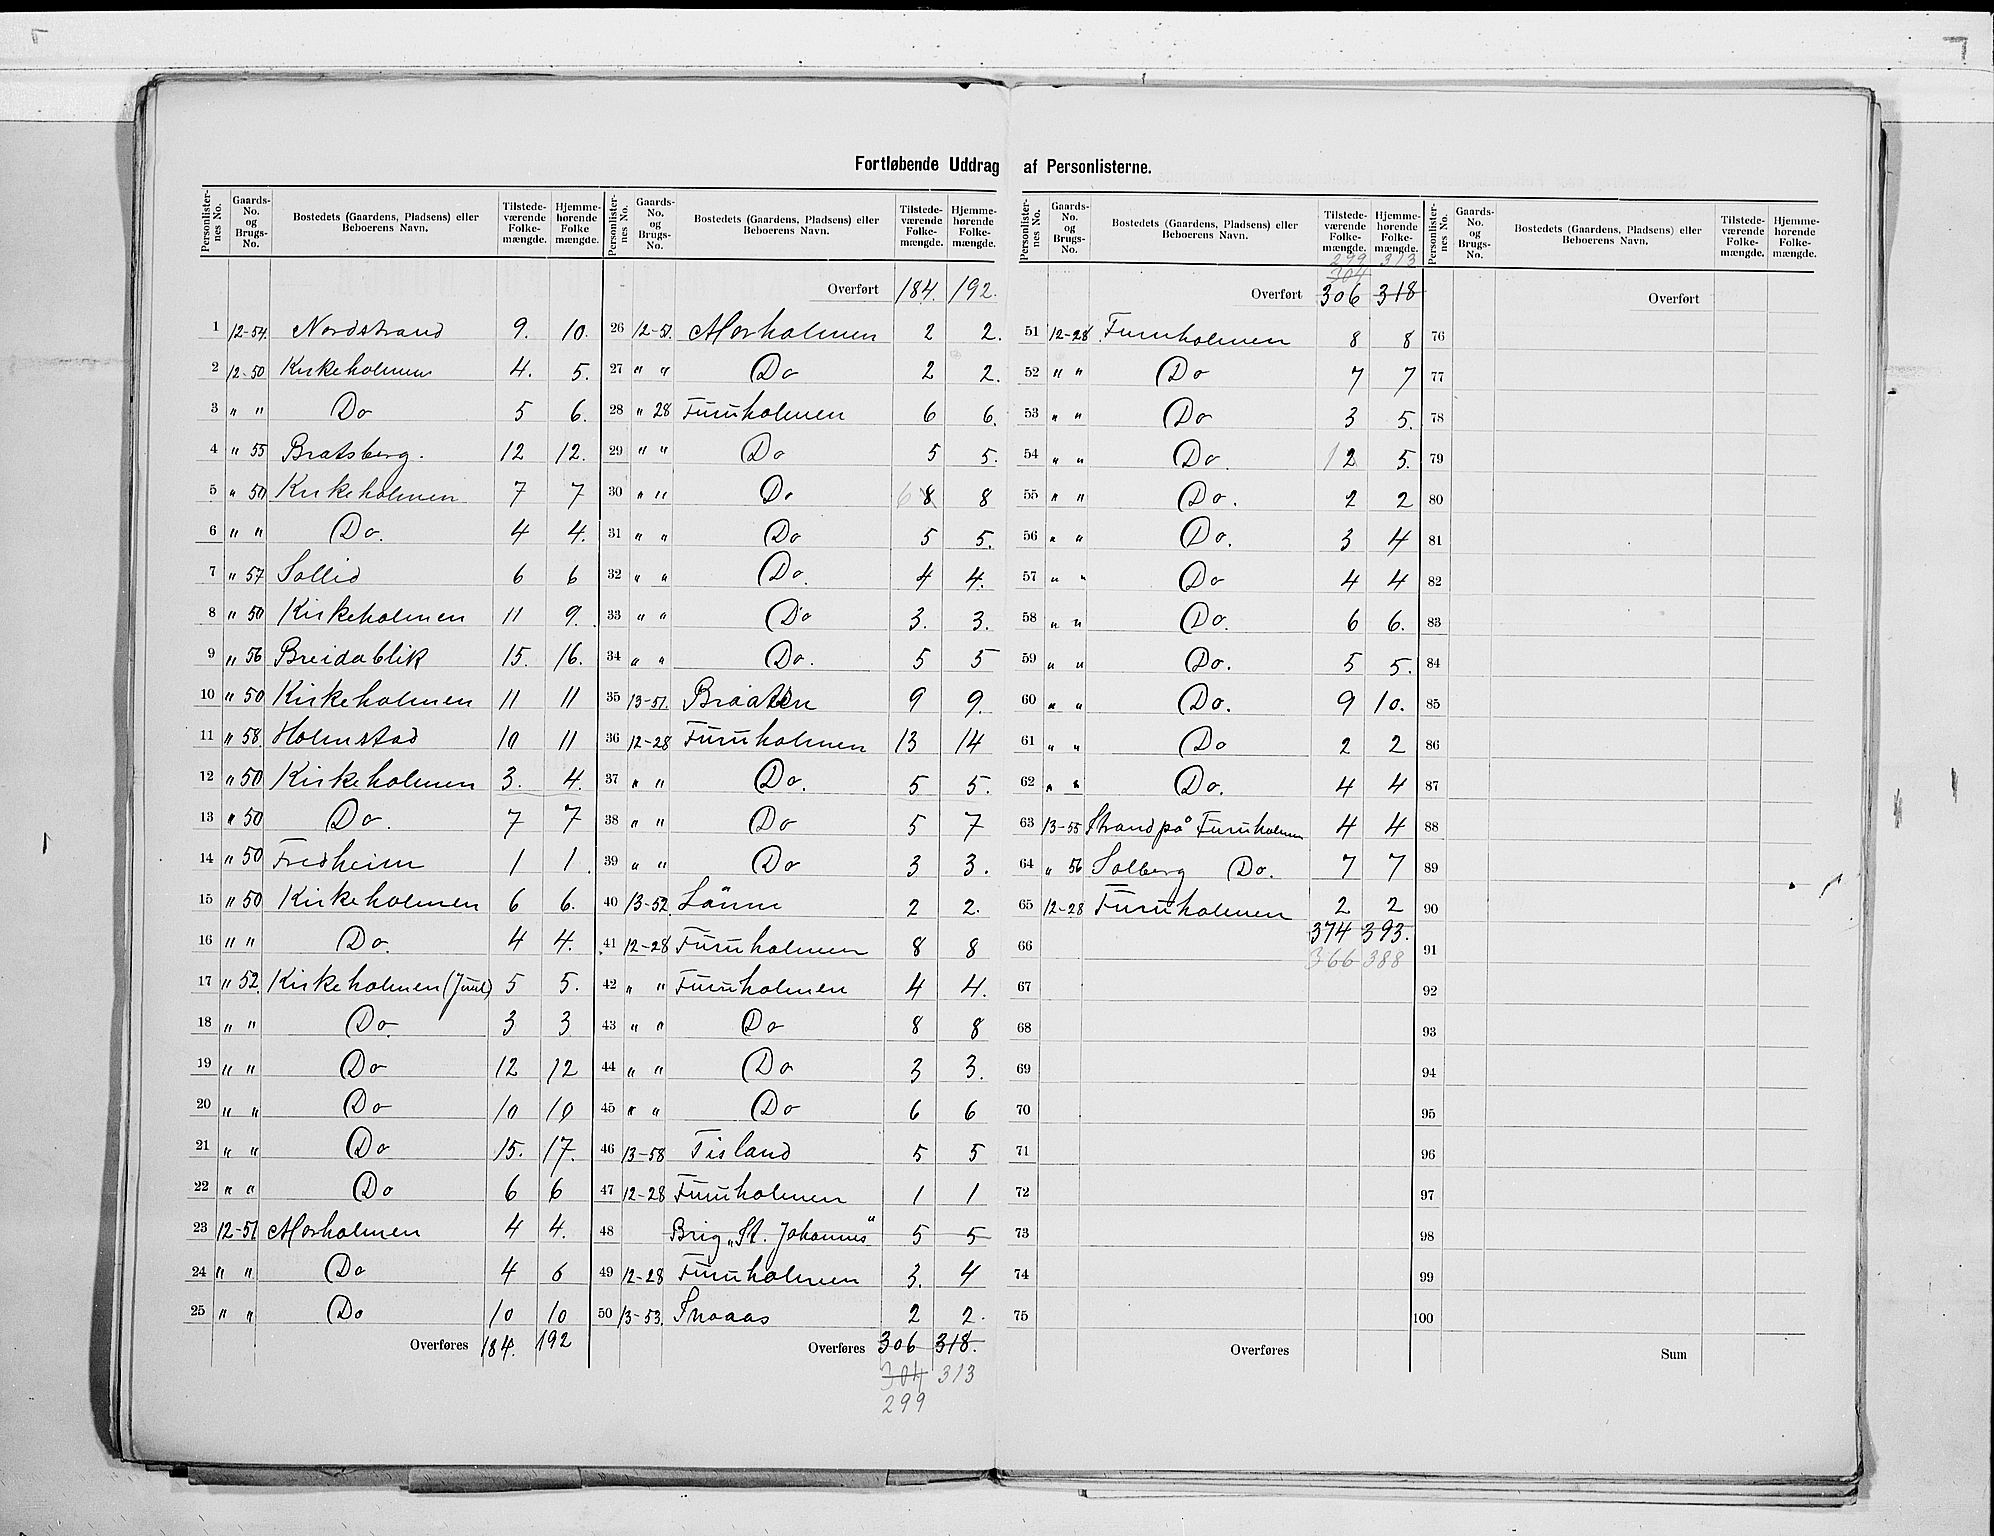 Fortløbende Uddrag af Personlisterne.
Personlister-nes No. Gaards-No. og Brugs-No. Bostedets (Gaardens, Pladsens) eller Beboerens Navn. Tilstede-værende Folke-mængde. Hjemme-hørende Folke mængde.
1 12-54. Nordstrand 9. 10.
2 12-50 Kirkeholmen 4. 5.
3 " " Do 5 6.
4 " 55 Bratsberg. 12 12.
5 " 50 Kirkeholmen 7 7
6 " " Do. 4 4.
7 " 57 Sollid 6 6
8 " 50 Kirkeholmen 11 9.
9 " 56 Breidablik 15. 16.
10 " 50 Kirkeholmen 11 11
11 " 58. Holmstad 10 11
12 " 50 Kirkeholmen 3. 4.
13 " 50 Do. 7 7
14 " 50 Fredheim 1 1.
15 " 50 Kirkeholmen 6 6.
16 " " Do. 4 4.
17 " 52. Kirkeholmen (Juul) 5 5.
18 " " Do. 3 3
19 " " Do 12 12
20 " " Do 10 10
21 " " Do 15. 17.
22 " " Do 6 6
23 12-51 Morholmen 4 4.
24 " " Do 4 6
25 " " Do 10 10
Overføres 184. 192
Personlister-nes No. Gaards-No. og Brugs-No. Bostedets (Gaardens, Pladsens) eller Beboerens Navn. Tilstede-værende Folke-mængde. Hjemme-hørende Folke-mængde.
Overført 184. 192.
26 12-51. Morholmen 2 2.
27 " " Do 2 2.
28 " 28 Furuholmen 6 6.
29 " " Do 5 5.
30 " " Do 6 8 8
31 " " Do 5 5.
32 " " Do. 4 4.
33 " " Do 3. 3.
34 " " Do. 5 5
35 13-51. Braaten 9 9.
36 12-28 Furuholmen 13 14
37 " " Do. 5 5.
38 " " Do 5 7
39 " " Do 3 3.
40 13-52. 2 2.
41 12-28 Furuholmen 8 8
42 " " Furuholmen 4 4.
43 " " Do 8 8
44 " " Do 3 3.
45 " " Do 6 6
46 13-58 Tisland 5 5
47 12-28 Furuholmen 1 1
48 Brig „St. Johannes" 5 5
49 12-28 Furuholmen 3. 4
50 13-53. Snaaas 2 2.
Overføres 306 318.
304 313
299
Personlister-nes No. Gaards-No. og Brugs-No. Bostedets (Gaardens, Pladsens) eller Beboerens Navn. Tilstede-værende Folke-mængde. Hjemme-hørende Folke-mængde.
299 313
304
Overført 306 318
51 12-28 Furuholmen 8 8
52 " " Do 7 7
53 " " Do 3 5.
54 " " Do. 12 5.
55 " " Do. 2 2
56 " " Do. 3 4
57 " " Do 4 4
58 " " Do. 6 6.
59 " " Do. 5 5.
60 " " Do. 9 10.
61 " " Do 2 2
62 " " Do. 4 4
63 13-55 Strand på Furuholmen 4 4
64 " 56 Solberg Do. 7 7
65 12-28 Furuholmen 2 2
374 393.
66 366 388
67
68
69
70
71
72
73
74
75
Overføres
Personlister-nes No. Gaards-No. og Brugs-No. Bostedets (Gaardens, Pladsens) eller Beboerens Navn. Tilstede-værende Folke-mængde. Hjemme-hørende Folke-mængde.
Overført
76
77
78
79
80
81
82
83
84
85
86
87
88
89
90
91
92
93
94
95
96
97
98
99
100
Sum